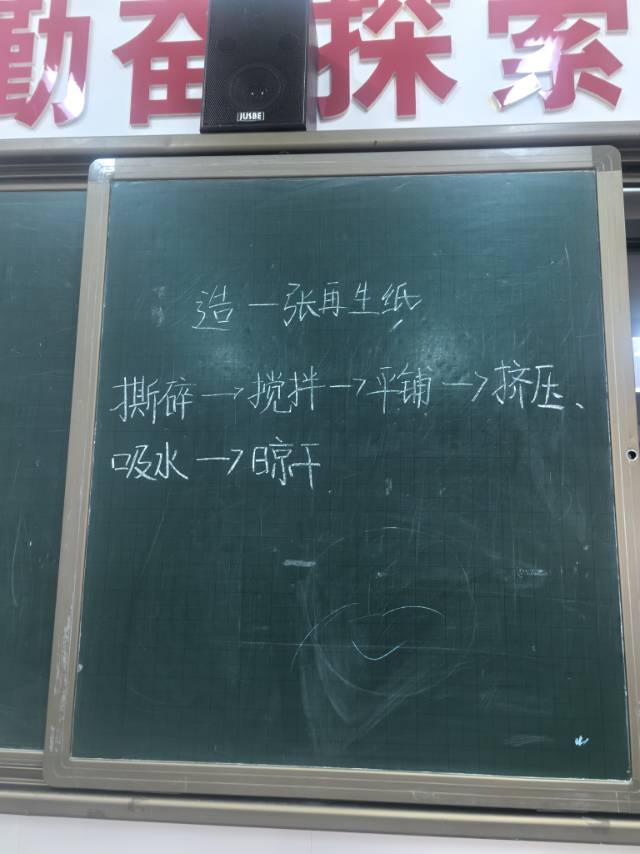 勤奋探索
JUSBE
造一张再生纸
撕碎→搅拌→平铺→挤压、
吸水→晾干